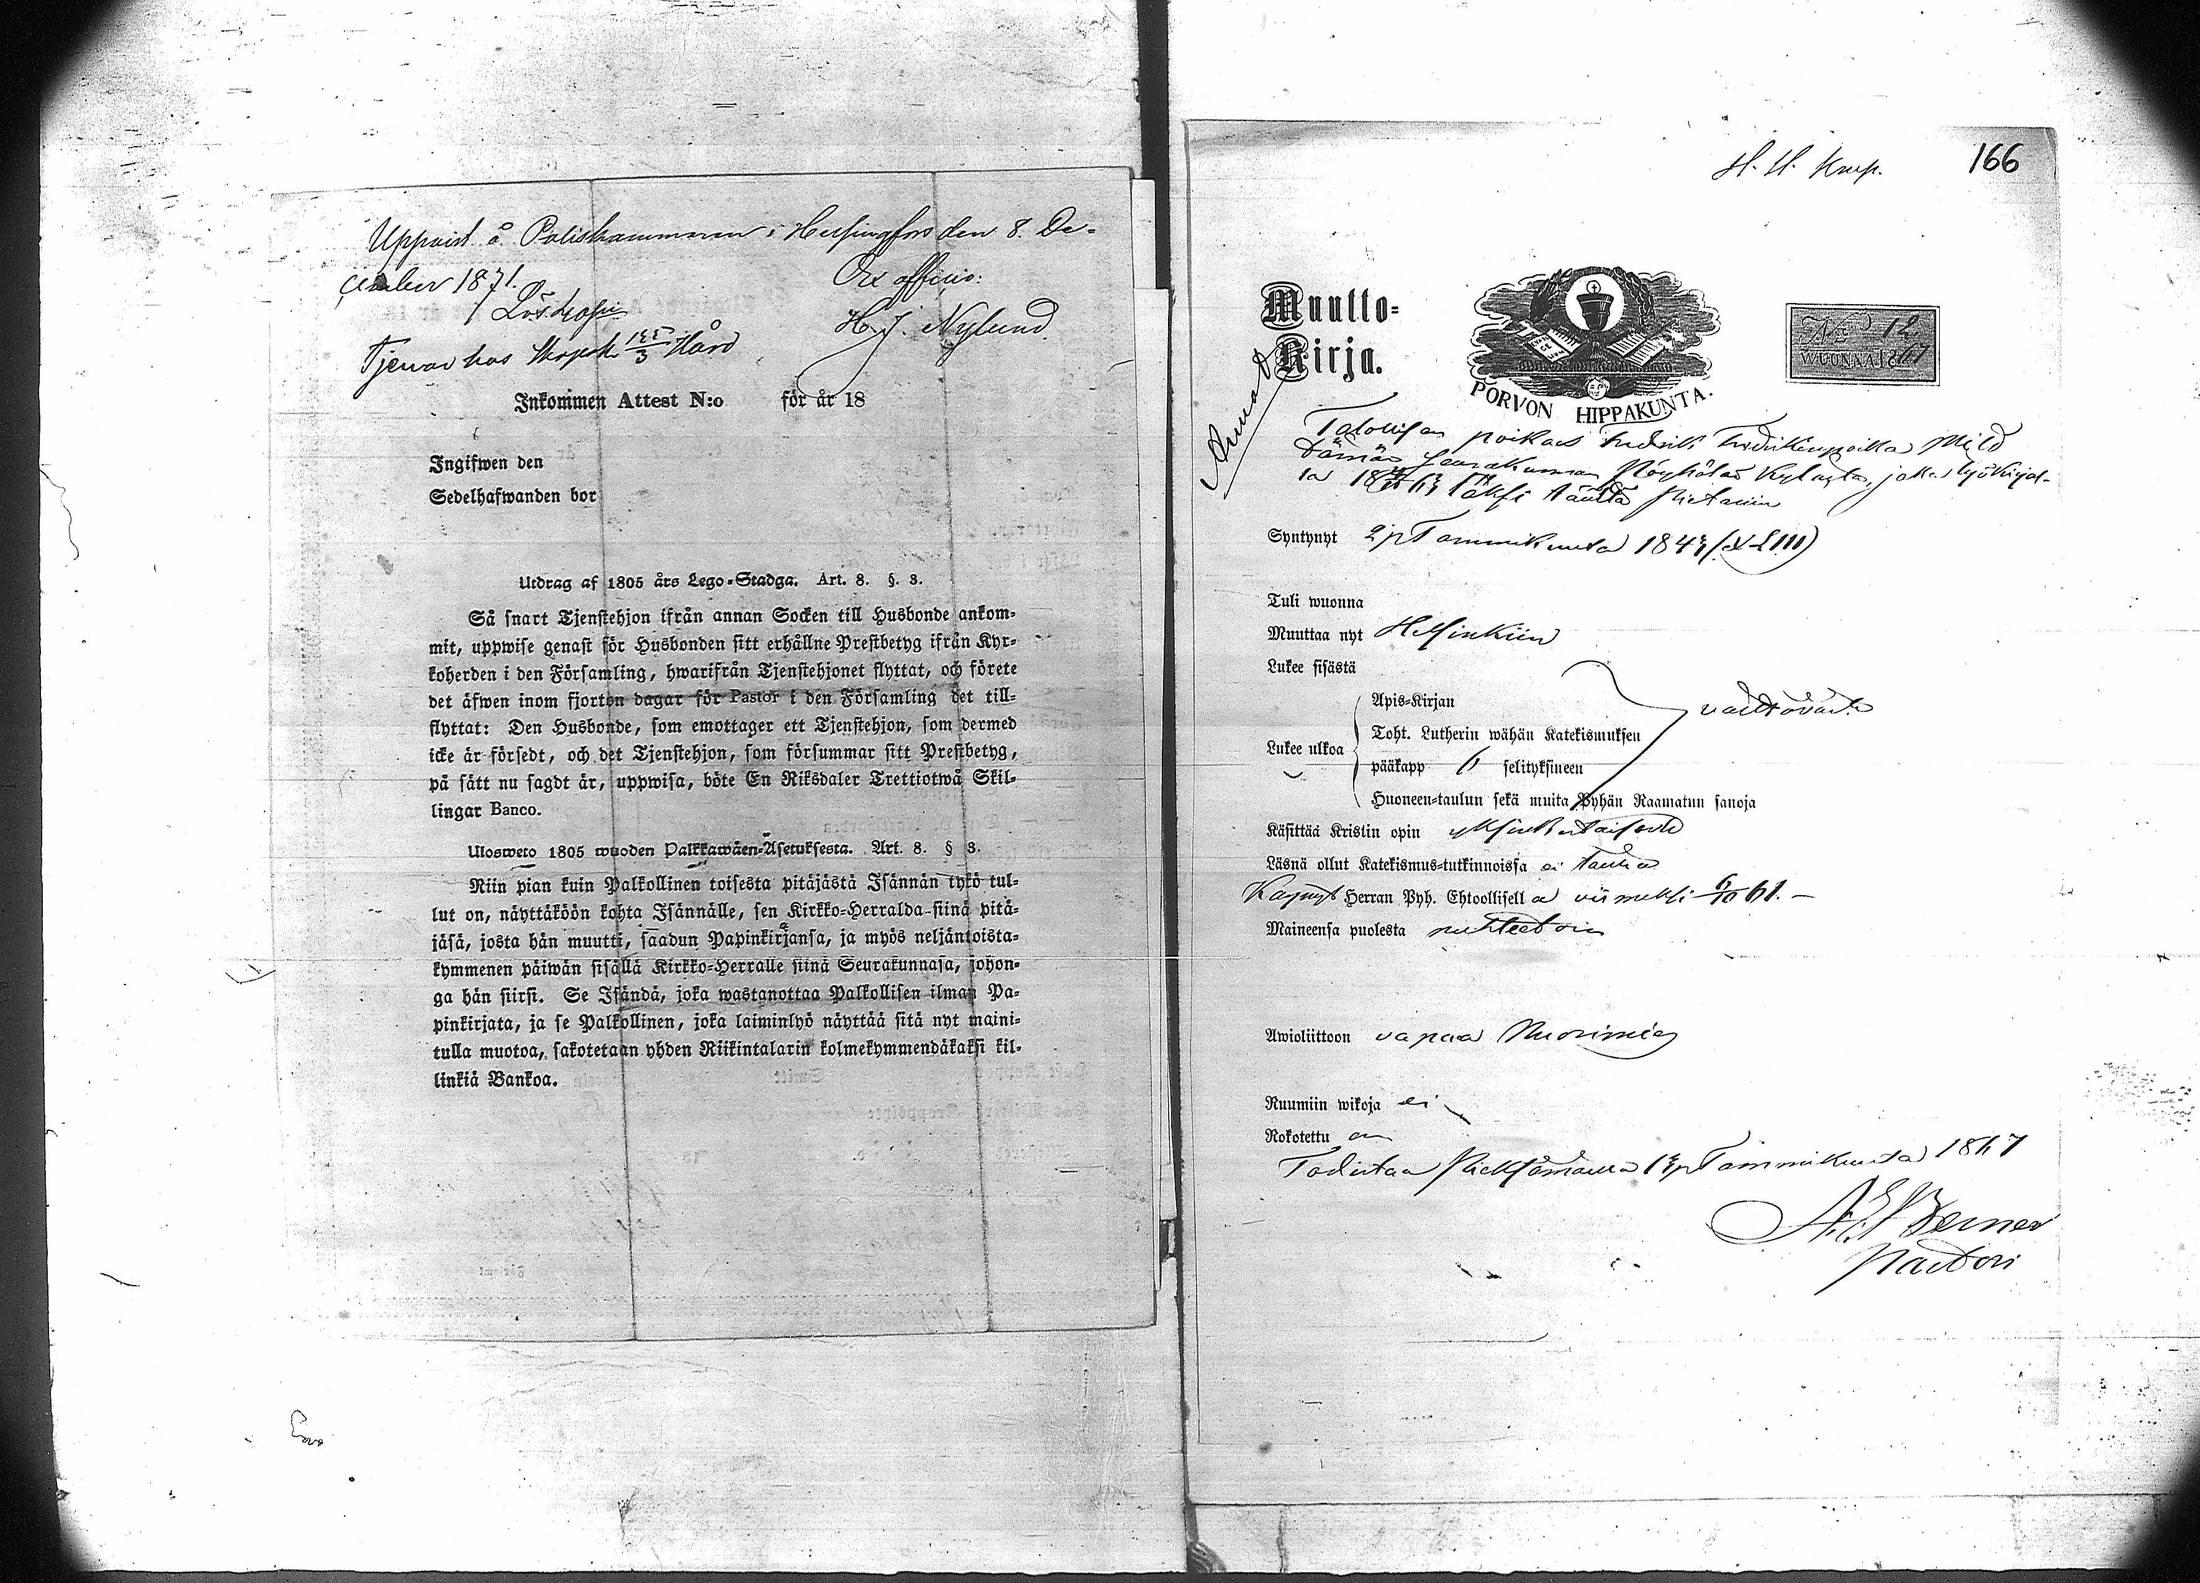 Uppvist å Poliskammaren i Helsingfors den 8. De-
cember 1871.
Ex officio:
H. J. Nylund
Tjenar hos
Inkommen Attest N:o för år 18
Ingifwen den
Sedelhafwanden bor
Utdrag af 1805 års Lego-Stadga. Art. 8. §. 3.
Så snart Tjenstehjon ifrån annan Socken till Husbonde ankom-
mit, uppwise genast för Husbonden sitt erhållne Prestbetyg ifrån Kyr-
koherden i den Församling, hwarifrån Tjenstehjonet flyttat, och förete
det äfwen inom fjorton dagar för Pastor i den Församling det till-
flyttat: Den Husbonde, som emottager ett Tjenstehjon, som dermed
icke är försedt, och det Tjenstehjon, som försummar sitt Prestbetyg,
på sätt nu sagdt är, uppwisa, böte En Riksdaler Trettiotwå Skil-
lingar Banco.
Ulosweto 1805 wuoden Palkkawäen-Asetuksesta. Art. 8. § 3.
Niin pian kuin Palkollinen toisesta pitäjästä Isännän tykö tul-
lut on, näyttäköön kohta Isännälle, sen Kirkko-Herralda siinä pitä-
jäsä, josta hän muutti, saadun Papinkirjansa, ja myös neljäntoista-
kymmenen päiwän sisällä Kirkko-Herralle siinä Seurakunnasa, johon-
ga hän siirsi. Se Isändä, joka wastanottaa Palkollisen ilman Pa-
pinkirjata, ja se Palkollinen, joka laiminlyö näyttää sitä nyt maini-
tulla muotoa, sakotetaan yhden Riikintalarin kolmekymmendäkaksi kil-
linkiä Bankoa.
166
Muutto-
Kirja.
PORVON HIPPAKUNTA.
N:o 12
WUONNA 1867
Talollisen poika Fredrik Fredrikinpoika
Tämän Seurakunnan kylästä, joka työkirjal-
la 18 täältä Pietariin
Syntynyt 2 p Tammikuuta 184
Tuli wuonna
Muuttaa nyt Helsinkiin
Lukee sisästä
Lukee ulkoa
Apis-Kirjan
Toht. Lutherin wähän Katekismuksen
pääkapp 6 selityksineen
Huoneen-taulun sekä muita Pyhän Raamatun sanoja
välttävästi
Käsittää Kristin opin yksinkertaisesti
Läsnä ollut Katekismus-tutkinnoissa ei täällä
Käynyt Herran Pyh. Ehtoollisella viimeksi 6/10 61.
Maineensa puolesta nuhteetoin
Awioliittoon vapaa Nuorimies
Ruumiin wikoja ei
Rokotettu on
Todistaa Pieksämäellä Tammikuuta 1867
Pastori